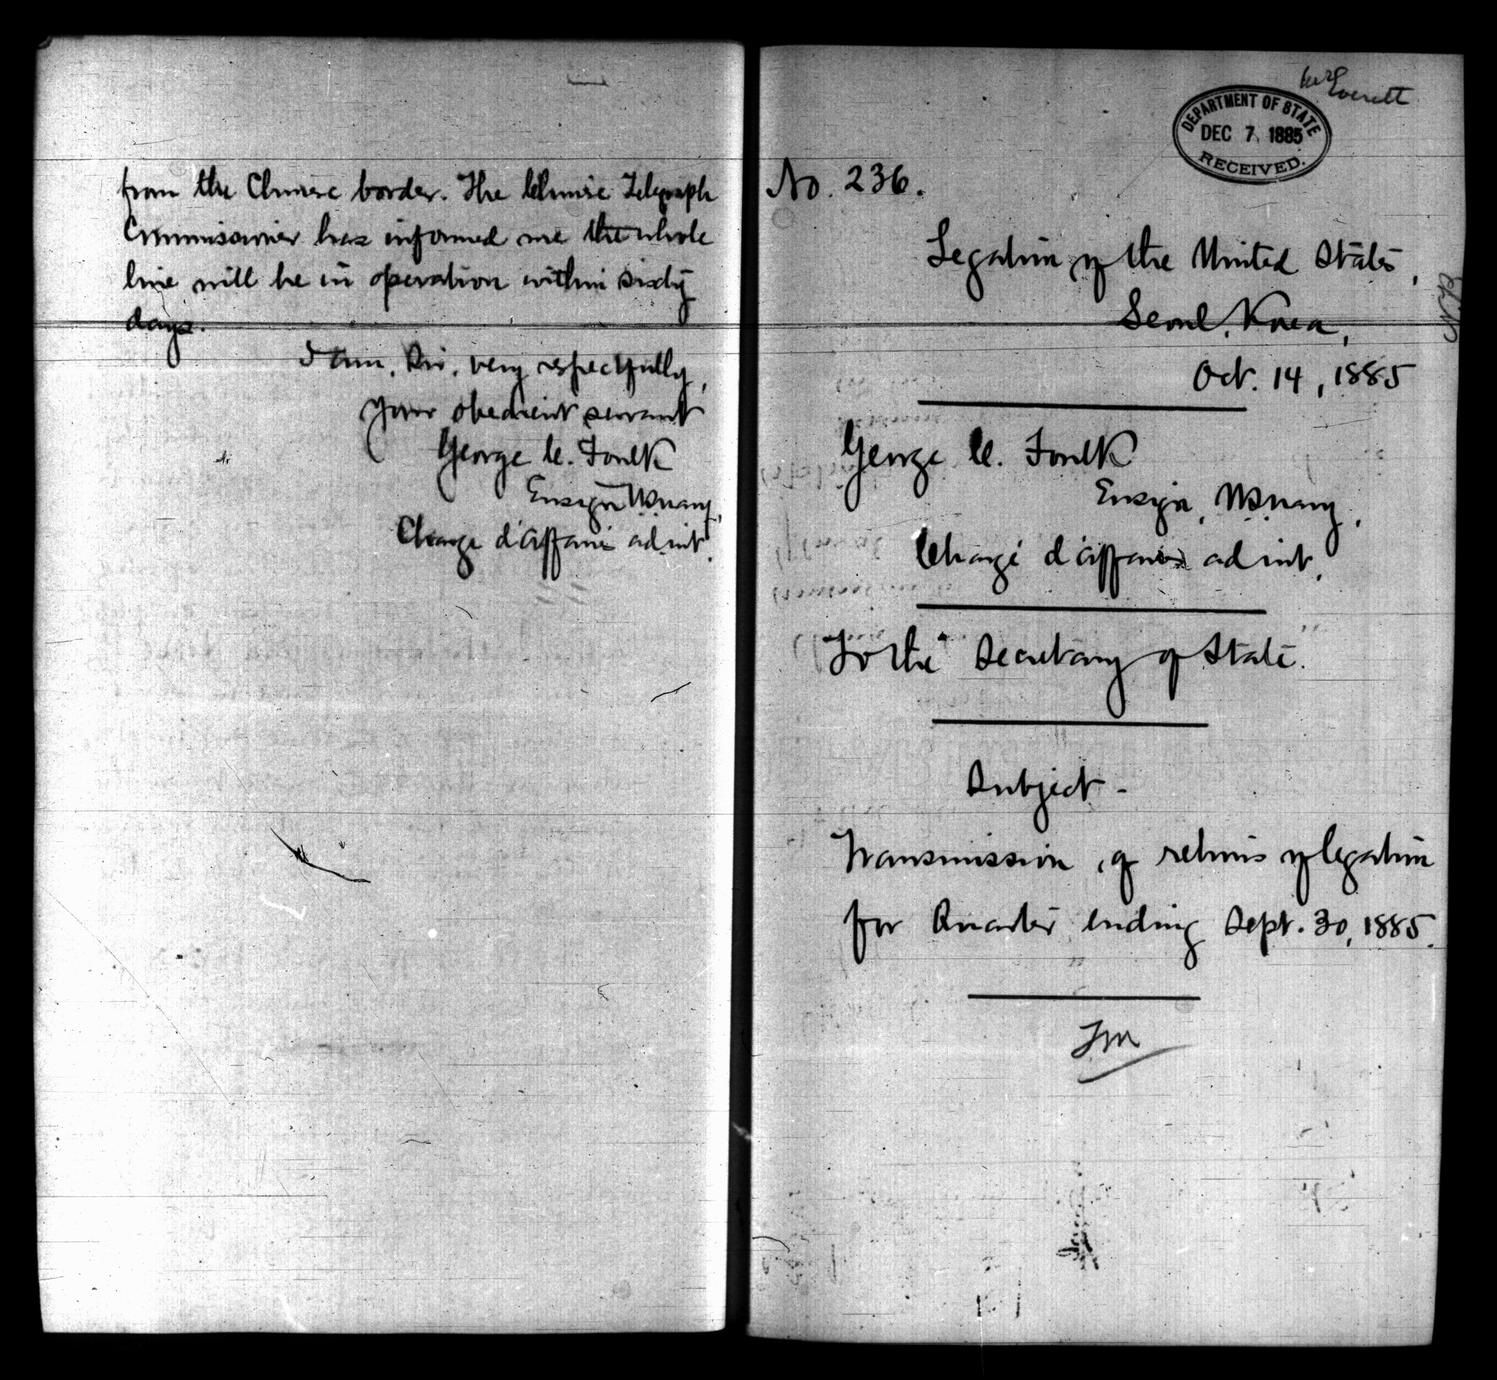 from the Chinese border. The Chinese Telegraph
Commissioner has informed me the whole
line will be in operation within sixty
days.
I am, Sir, very respectfully,
your obedient servant
George C. Foulk
Ensign U.S. Navy,
Charge d'affaires ad int.
Mr Everett
DEPARTMENT OF STATE
DEC 7 1885
RECEIVED.
No. 236.
Legation of the United States,
Seoul, Korea,
Oct. 14, 1885
George C. Foulk
Ensign, U.S. Navy,
Chargé d'affaires ad int,
To the Secretary of State.
Subject -
Transmission of returns of legation
for Quarter ending Sept. 30, 1885.